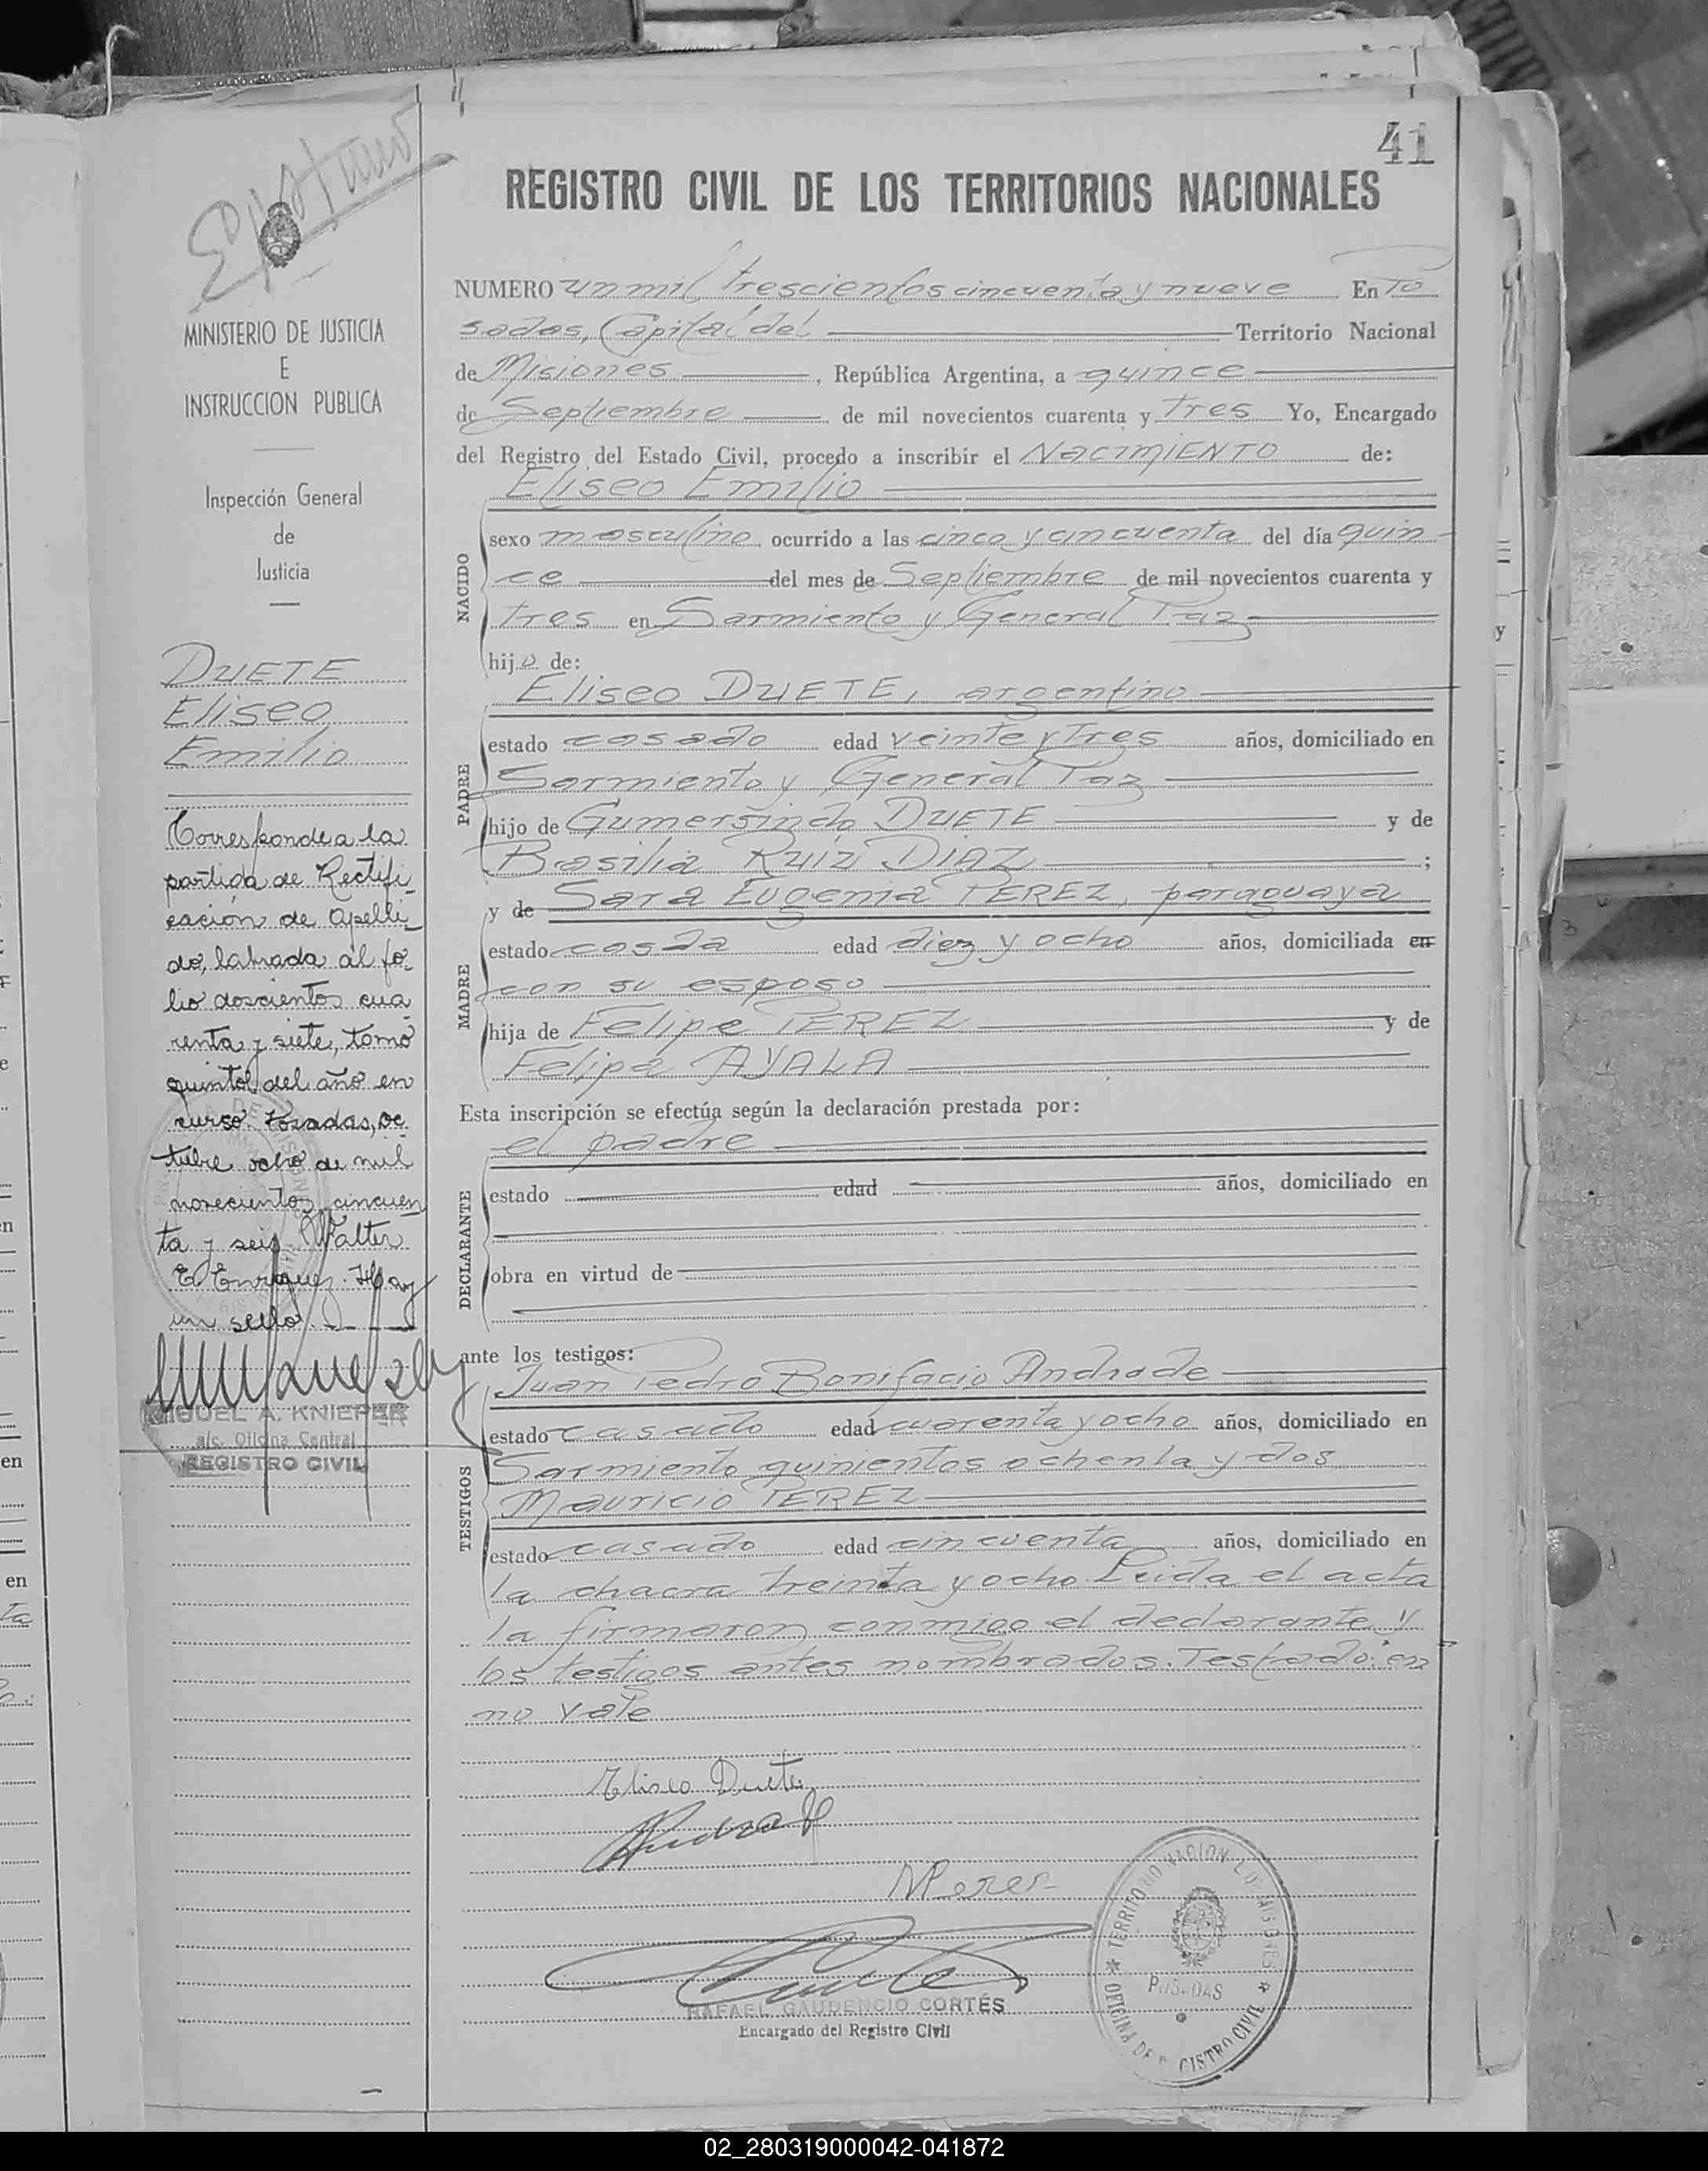 41
REGISTRO CIVIL DE LOS TERRITORIOS NACIONALES
MINISTERIO DE JUSTICIA
E
INSTRUCCION PUBLICA
Inspección General
de
Justicia
DUETE
Eliseo
Emilio
Corresponde a la
partida de Rectifi
cación de apelli
do, labrada al fo
lio doscientos cua
renta y siete, tomo
quinto, del año en
curso. Posadas, oc
tubre ocho de mil
novecientos cincuen
ta y seis. Walter
E. Enriquez. Hay
un sello.
MIGUEL A. KNIEPER
a/c. Oficina Central
REGISTRO CIVIL
NUMERO un mil, trescientos cincuenta y nueve En Po
sadas, Capital del Territorio Nacional
de Misiones, República Argentina, a quince
de Septiembre de mil novecientos cuarenta y tres Yo, Encargado
del Registro del Estado Civil, procedo a inscribir el NACIMIENTO de:
Eliseo Emilio
NACIDO
sexo masculino ocurrido a las cinco y cincuenta del día quin
ce del mes de Septiembre de mil novecientos cuarenta y
tres en Sarmiento y General Paz
hijo de:
Eliseo DUETE, argentino
PADRE
estado casado edad veinte y tres años, domiciliado en
Sarmiento y General Paz
hijo de Gumersindo DUETE y de
Basilia RUIZ DIAZ;
y de Sara Eugenia PEREZ, paraguaya
MADRE
estado casda edad diez y ocho años, domiciliada en
con su esposo
hija de Felipe PEREZ y de
Felipa AYALA
Esta inscripción se efectúa según la declaración prestada por:
el padre
DECLARANTE
estado edad años, domiciliado en
obra en virtud de
ante los testigos:
Juan Pedro Bonifacio Andrade
TESTIGOS
estado casado edad cuarenta y ocho años, domiciliado en
Sarmiento quinientos ochenta y dos
Mauricio PEREZ
estado casado edad cincuenta años, domiciliado en
la chacra treinta y ocho. Leida el acta
la firmaron conmigo el declarante y
los testigos antes nombrados. Testado: en
no vale
Eliseo Duete
Andrade
MPerez
RAFAEL GAUDENCIO CORTÉS
Encargado del Registro Civil
TERRITORIO NACIONAL DE MISIONES
POSADAS
OFICINA DE REGISTRO CIVIL
02_280319000042-041872